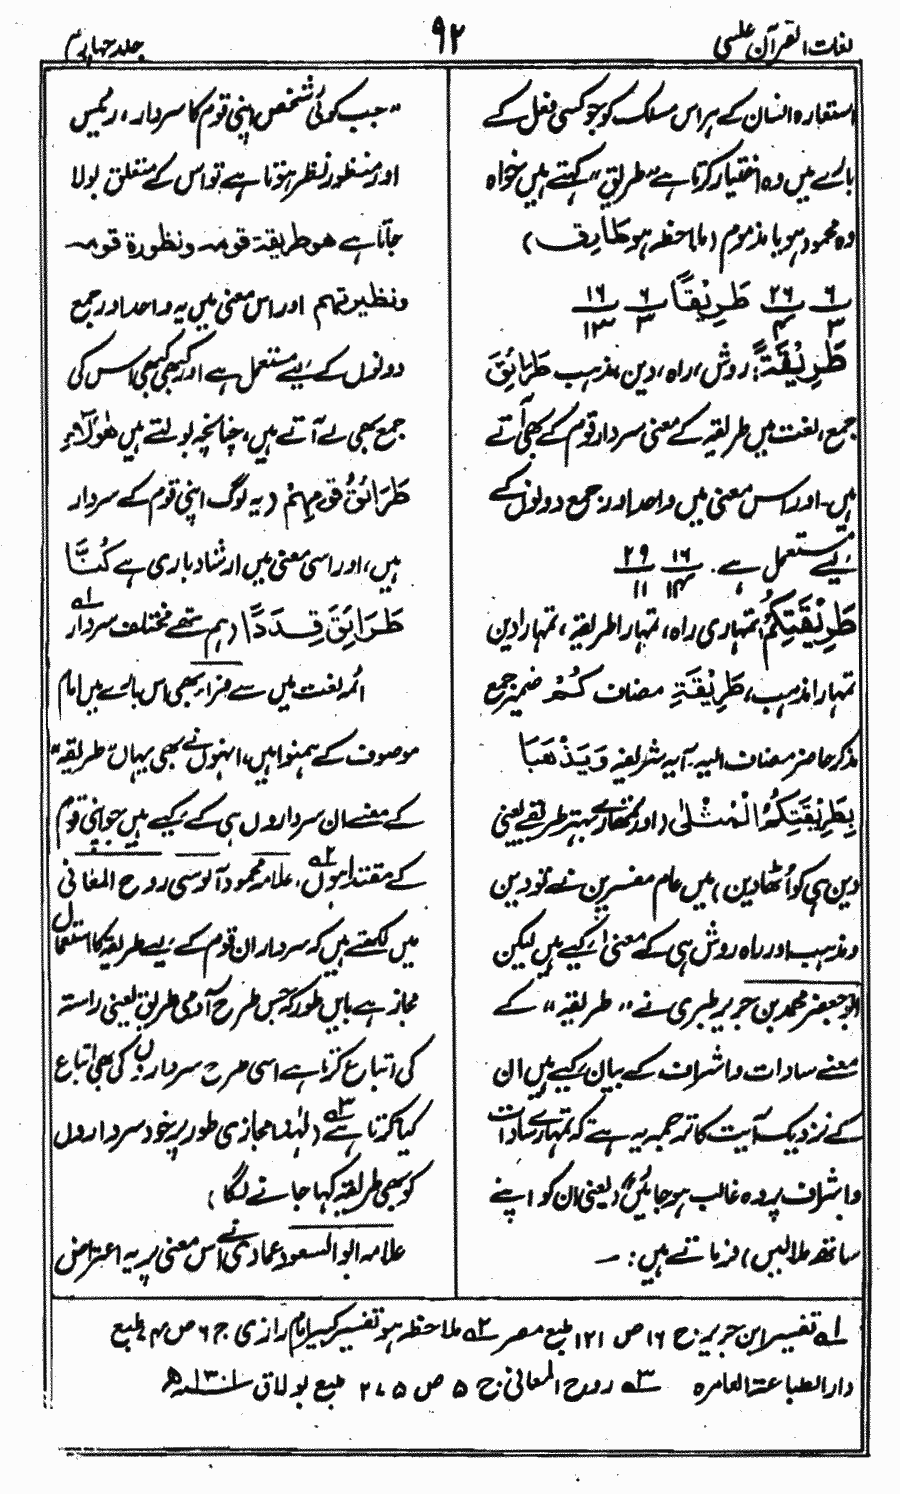 لغات القرآن علسی
۹۲
جلد چہارم
استعارہ انسان کے ہر اس مسلک کو جو کسی فعل کے
بارے میں وہ اختیار کرتا ہے "طریق" کہتے ہیں خواہ
وہ محمود ہو یا مذموم (ملاحظہ ہو طارف)
۶/۳ ۲۶/۴ طَرِيْقًا ۶/۳ ۱۶/۱۳
طَرِيْقَةً: روش، راہ، دین، مذہب طَرَائِقَ
جمع، لغت میں طریقہ کے معنی سردار قوم کے بھی آتے
ہیں۔ اور اس معنی میں واحد اور جمع دونوں کے
لیے مستعمل ہے۔ ۱۶/۱۴ ۲۹/۱۱
طَرِيْقَتِكُمْ تمہاری راہ، تمہارا طریقہ، تمہارا دین
تمہارا مذہب، طَرِيْقَةِ مضاف كُمْ ضمیر جمع
مذکر حاضر مضاف الیہ۔ آیہ شریفہ وَيَذْهَبَا
بِطَرِيْقَتِكُمُ الْمُثْلٰى (اور تمہارے بہتر طریقے یعنی
دین ہی کو اُٹھا دیں) میں عام مفسرین نے تو دین
ومذہب اور راہ روش ہی کے معنی کیے ہیں لیکن
ابوجعفر محمد بن جریر طبری نے "طریقہ" کے
معنے سادات واشراف کے بیان کیے ہیں ان
کے نزدیک آیت کا ترجمہ یہ ہے کہ تمہارے سادات
واشراف پر وہ غالب ہو جائیں" (یعنی ان کو اپنے
ساتھ ملا لیں) فرماتے ہیں:۔
"جب کوئی شخص اپنی قوم کا سردار، رئیس
اور منظور نظر ہوتا ہے تو اس کے متعلق بولا
جاتا ہے هو طريقة قومه ونظورة قومه
ونظيرتهم اور اس معنی میں یہ واحد اور جمع
دونوں کے لیے مستعمل ہے اور کبھی کبھی اس کی
جمع بھی لے آتے ہیں، چنانچہ بولتے ہیں هٰؤلاء
طَرَائقُ قومِهِمْ (یہ لوگ اپنی قوم کے سردار
ہیں، اور اسی معنی میں ارشاد باری ہے كُنَّا
طَرَائِقَ قِدَدًا (ہم تھے مختلف سردار ۱ے
ائمہ لغت میں سے فراء بھی اس بارے میں امام
موصوف کے ہمنوا ہیں، انہوں نے بھی یہاں "طریقہ"
کے معنے ان سرداروں ہی کے کیے ہیں جو اپنی قوم
کے مقتدا ہوں ۲ے۔ علامہ محمود آلوسی روح المعانی
میں لکھتے ہیں کہ سرداران قوم کے لیے طریقہ کا استعمال
مجاز ہے بایں طور کہ جس طرح آدمی طریق یعنی راستہ
کی اتباع کرتا ہے اسی طرح سرداروں کی بھی اتباع
کیا کرتا ہے ۳ے (لہٰذا مجازی طور پر خود سرداروں
کو بھی طریقہ کہا جانے لگا)
علامہ ابو السعود عمادی نے اس معنی پر یہ اعتراض
۱ے تفسیر ابن جریر: ج ۱۶ ص ۱۲۱ طبع مصر ۲ے ملاحظہ ہو تفسیر کبیر امام رازی ج ۶ ص ۴ طبع
دار الطباعۃ العامرہ ۳ے روح المعانی: ج ۵ ص ۲۷۵ طبع بولاق ۱۳۰۱ھ